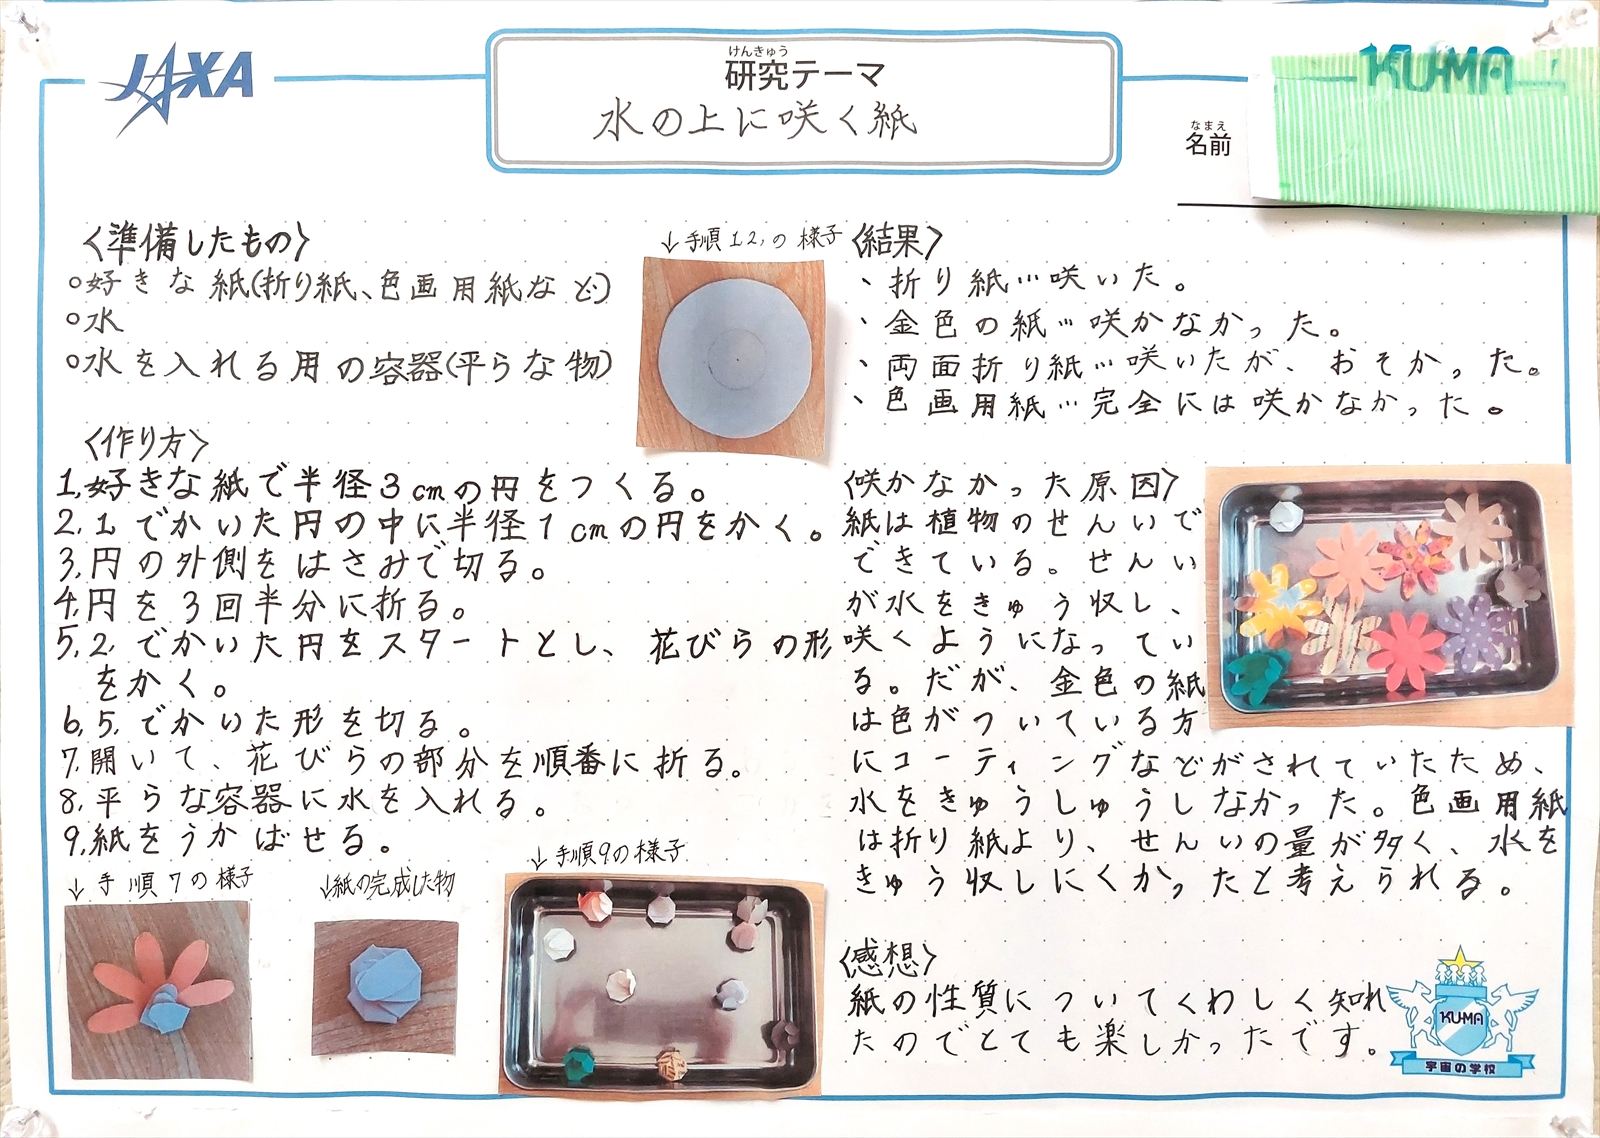 JAXA
けんきゅう
研究テーマ
水の上に咲く紙
KU-MA
なまえ
名前
〈準備したもの〉
○好きな紙(折り紙、色画用紙など)
○水
○水を入れる用の容器(平らな物)
↓手順1.2.の様子
〈作り方〉
1.好きな紙で半径3cmの円をつくる。
2.1.でかいた円の中に半径1cmの円をかく。
3.円の外側をはさみで切る。
4.円を3回半分に折る。
5.2.でかいた円をスタートとし、花びらの形
をかく。
6.5.でかいた形を切る。
7.開いて、花びらの部分を順番に折る。
8.平らな容器に水を入れる。
9.紙をうかばせる。
↓手順7の様子
↓紙の完成した物
↓手順9の様子
〈結果〉
・折り紙…咲いた。
・金色の紙…咲かなかった。
・両面折り紙…咲いたが、おそかった。
・色画用紙…完全には咲かなかった。
〈咲かなかった原因〉
紙は植物のせんいで
できている。せんい
が水をきゅう収し、
咲くようになってい
る。だが、金色の紙
は色がついている方
にコーティングなどがされていたため、
水をきゅうしゅうしなかった。色画用紙
は折り紙より、せんいの量が多く、水を
きゅう収しにくかったと考えられる。
〈感想〉
紙の性質についてくわしく知れ
たのでとても楽しかったです。
KU-MA
宇宙の学校